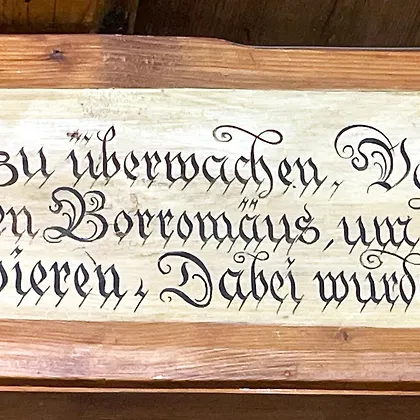 zu überwachen. Vo
en Borromäus, um
pieren. Dabei wurd